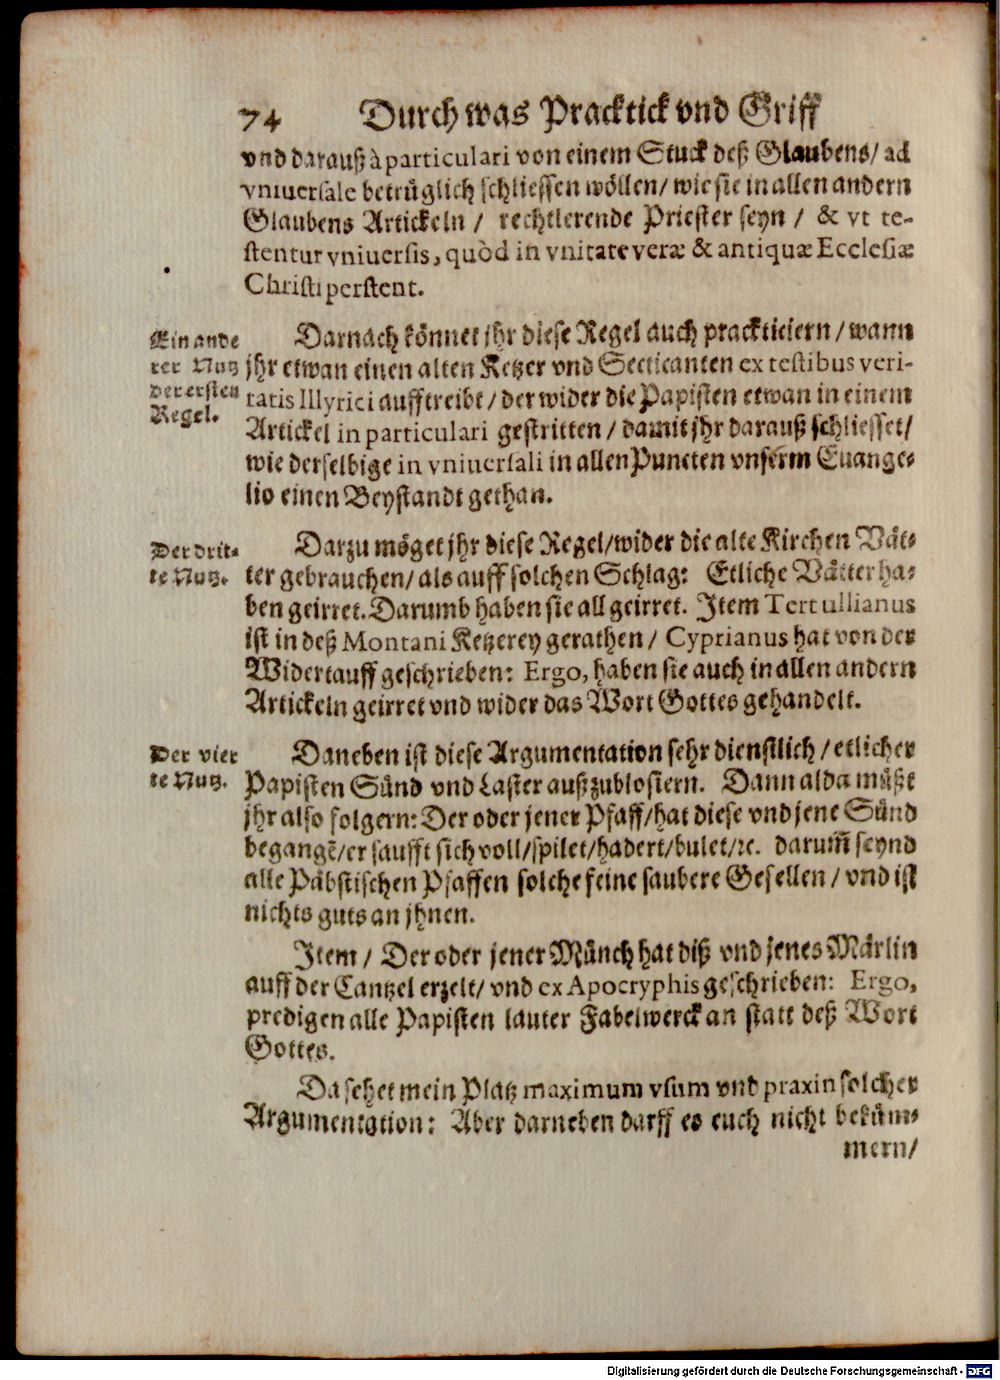 74 Durch was Pracktick vnd Griff
vnd darauß à particulari von einem Stuck deß Glaubens/ ad
vniuersale betrůglich schliessen wöllen/ wie sie in allen andern
Glaubens Artickeln / rechtlerende Priester seyn / & vt te-
stentur vniuersis, quòd in vnitate veræ & antiquæ Ecclesiæ
Christi perstent.
Ein ande
rer Nutz
der ersten
Regel.
Darnach könnet jhr diese Regel auch practiciern / wann
jhr etwan einen alten Ketzer vnd Secticanten ex testibus veri-
tatis Illyrici aufftreibt / der wider die Papisten etwan in einem
Artickel in particulari gestritten / damit jhr darauß schliesset/
wie derselbige in vniuersali in allen Puncten vnserm Euange-
lio einen Beystandt gethan.
Der drit-
te Nutz.
Darzu möget jhr diese Regel/wider die alte Kirchen Våt-
ter gebrauchen/ als auff solchen Schlag: Etliche Våtter ha-
ben geirret. Darumb haben sie all geirret. Item Tertullianus
ist in deß Montani Ketzerey gerathen / Cyprianus hat von der
Widertauff geschrieben: Ergo, haben sie auch in allen andern
Artickeln geirret vnd wider das Wort Gottes gehandelt.
Der vier
te Nutz.
Daneben ist diese Argumentation sehr dienstlich / etlicher
Papisten Sůnd vnd Laster außzublosiern. Dann alda můßt
jhr also folgern: Der oder jener Pfaff/hat diese vnd jene Sůnd
begangẽ/er saufft sich voll/spilet/hadert/bulet/ꝛc. darum̃ seynd
alle Påbstischen Pfaffen solche feine saubere Gesellen / vnd ist
nichts guts an jhnen.
Item / Der oder jener Můnch hat diß vnd jenes Mårlin
auff der Cantzel erzelt/ vnd ex Apocryphis geschrieben: Ergo,
predigen alle Papisten lauter Fabelwerck an statt deß Wort
Gottes.
Da sehet mein Platz maximum vsum vnd praxin solcher
Argumentation: Aber darneben darff es euch nicht bekům-
mern/
Digitalisierung gefördert durch die Deutsche Forschungsgemeinschaft - DFG